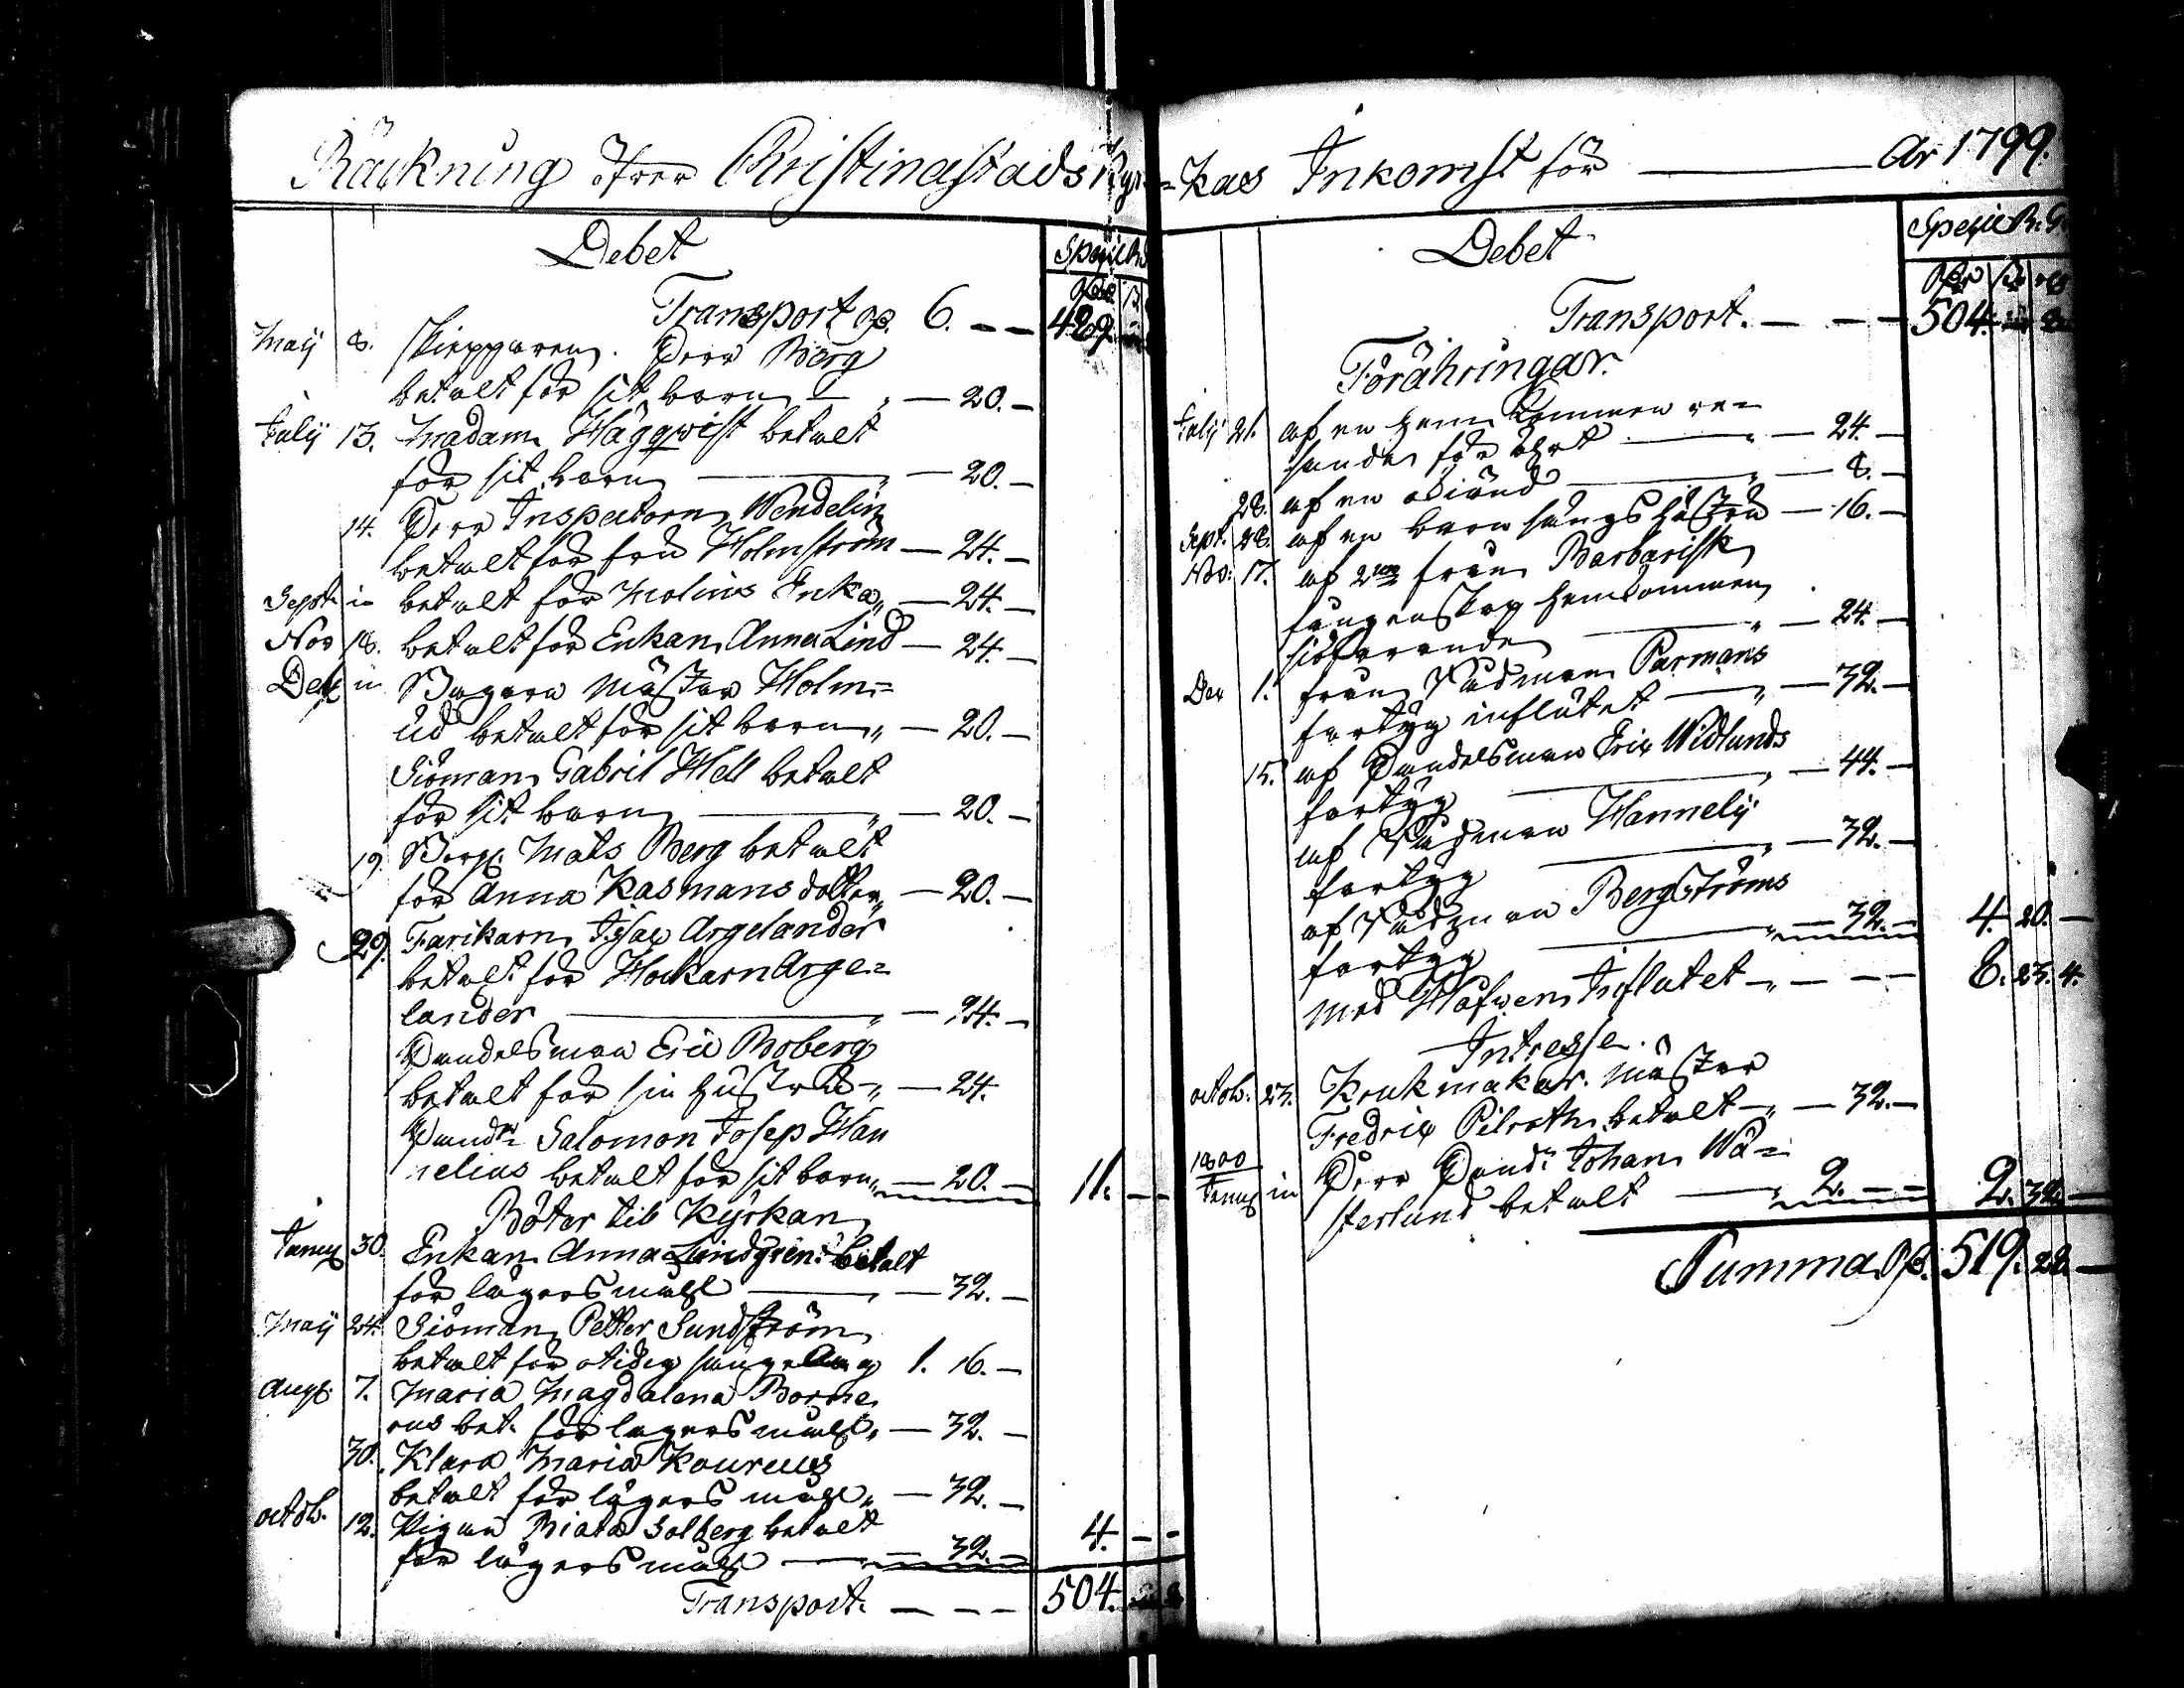 Räckning öfver Christinæstads Kyr=
Debet
Specie Rd
Transport op. 6. – – 489.
Maij 8. Skepparen Herr Berg
betalt för sit barn – „ – 20. –
Julij 13. Madam Häggqwist betalt
för sit barn – „ – 20. –
14. Herr Inspectorn Wendelin
betalt för fru Holmström – 24. –
Sept. betalt för Molins Enka „ – 24. –
Nov 18. betalt för Enkan Anna Lind – 24. –
Dec Bagare Mästar Holm=
betalt för sit barn „ – 20. –
Siöman Gabril Hell betalt
för sit barn – „ – 20. –
19. Borg. Mats Berg betalt
för Anna Kasmans dotter „ – 20. –
29. Farikarn Isac Argelander
betalt för Hockarn Arge=
lander – „ – 24. –
Handelsman Eric Moberg
betalt för sin hustru – „ – 24.
Handl. Salomon Josep Han
nelius betalt för sit barn „ – 20. – 11. – –
Böter til Kyrkan
Januarii 30. Enkan Anna Lindgren betalt
för lägersmåhl – – 32. –
Maij 24. Siöman Petter Sundström
betalt för otidig sängelag 1. 16. –
Aug. 7. Maria Magdalena Borne
rus bet. för lägersmåhl „ – 32. –
30. Klara Maria Koureus
betalt för lägersmåhl „ – 32. –
Octob. 12. Pigan Biata Solberg betalt
för lägersmåhl – – 32. – 4. – –
Transport. – – – 504.
kas Inkomst för – År 1799.
Debet
Specie R. G.
Transport. – – – 504.
Förähringar.
Julij 21. af en hemkommen re=
sande för – „ – 24. –
28. af en okiänd – „ – 8. –
Sept. 28. af en barnsängs hustru – 16. –
Nov: 17. af 2ne från Barbarisk
fångenskap hemkommen
siöfarande – „ – 24. –
Dec 1. från Rådman Parmans
fartyg influtet – „ – 32. –
15. af Handelsman Eric Widlunds
fartyg – „ – 44. –
af Rådman Hannelij
fartyg – „ – 32. –
af Rådman Bergströms
fartyg – „ – 32. – 4. 20. –
Med Håfwen Influtet – „ – – – 6. 23. 4.
Intresse.
Octob. 23. Krukmakar. mästar
Fredric Pilroth betalt – „ – 32. –
1800
Januarii Herr Handl. Johan Wä=
sterlund betalt – „ 2. – – 2. 32. –
Summa Rd. 519. 28. –